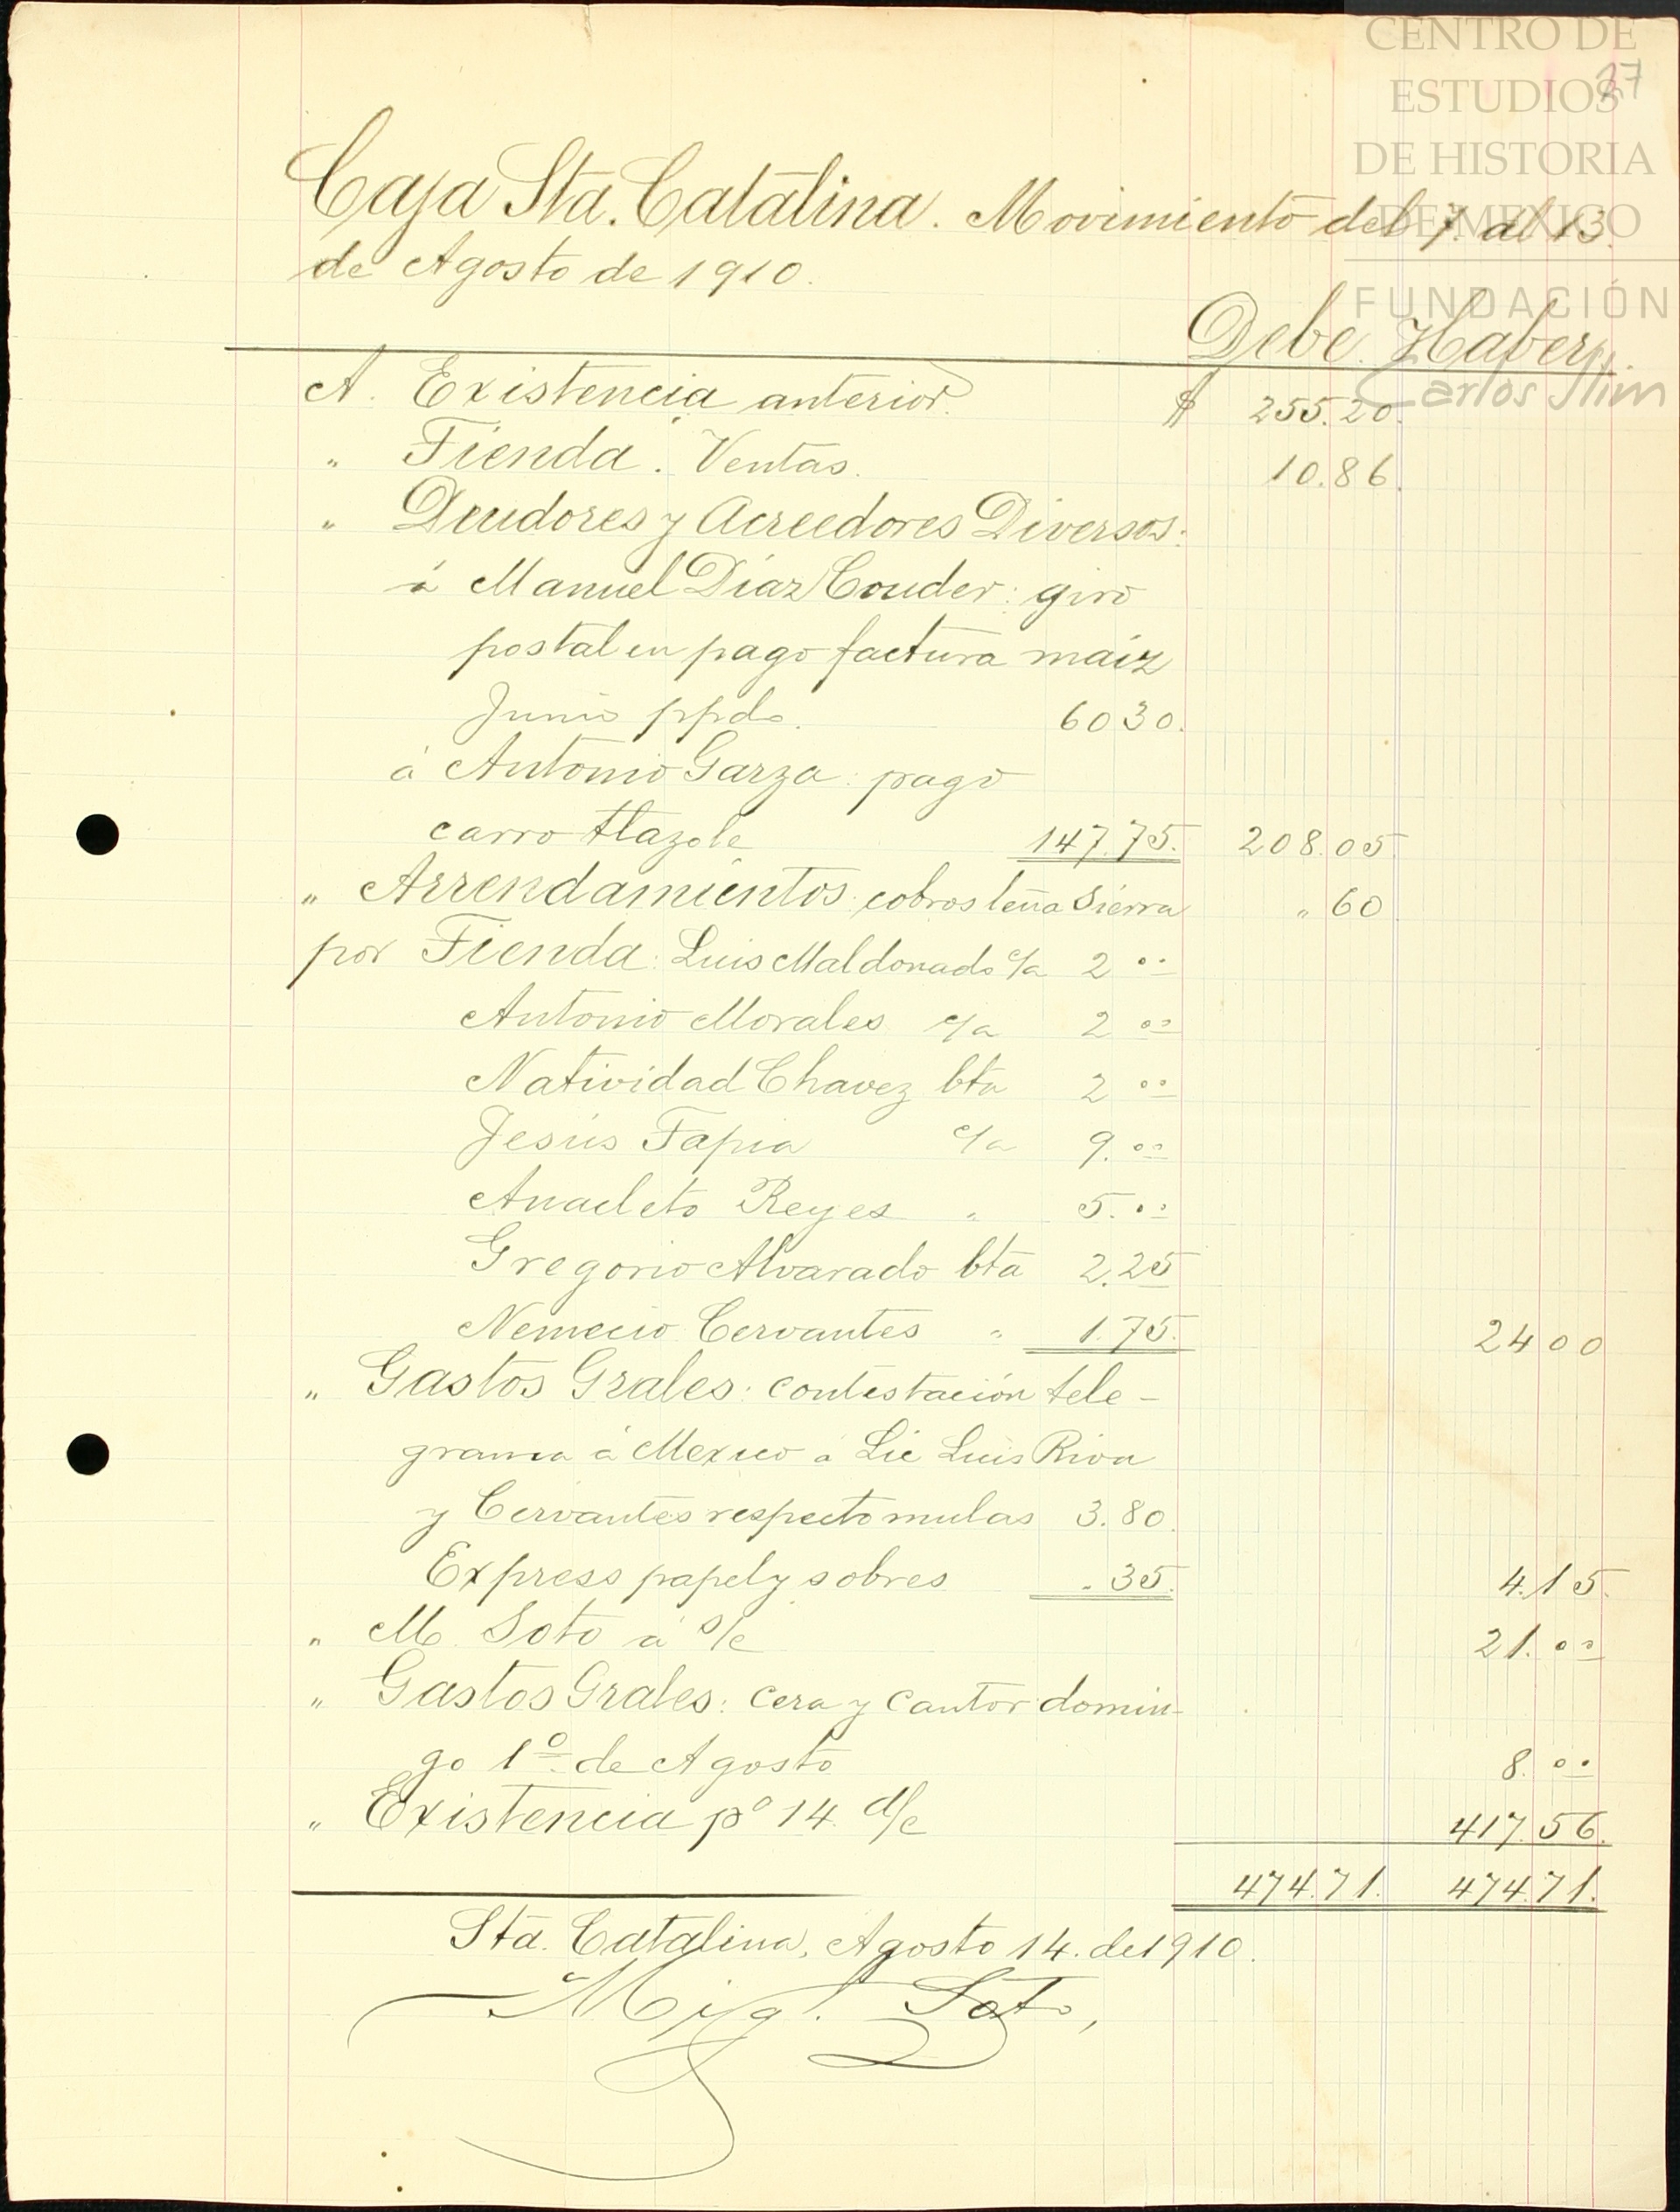 CENTRO DE
ESTUDIOS
DE HISTORIA
DE MEXICO
FUNDACIÓN
Carlos Slim
27
Caja Sta. Catalina. Movimiento del 7. al 13.
de Agosto de 1910.
Debe. Haber.
A. Existencia anterior. $ 255.20.
" Tienda. Ventas. 10.86.
" Deudores y Acreedores Diversos:
á Manuel Diaz Couder: giro
postal en pago factura maíz
Junio ppdo. 60 30.
á Antonio Garza: pago
carro tlazole 147.75. 208.05
" Arrendamientos: cobros leña Sierra " 60
por Tienda: Luis Maldonado c/a 2 00
Antonio Morales c/a 2 00
Natividad Chavez bta 2 00
Jesús Tapia c/a 9. 00
Anacleto Reyes " 5. 00
Gregorio Alvarado bta 2.25
Nemecio Cervantes " 1.75. 24 00
" Gastos Grales: contestación tele-
grama á Mexico á Lic Luis Riva
y Cervantes respecto mulas 3.80.
Express papel y sobres ". 35. 4.15.
" M. Soto á s/c 21. 00
" Gastos Grales: cera y cantor domin-
go 1º de Agosto 8. 00
" Existencia pº 14. d/c 417.56.
474.71. 474.71.
Sta. Catalina, Agosto 14. de 1910.
Migl. Soto,